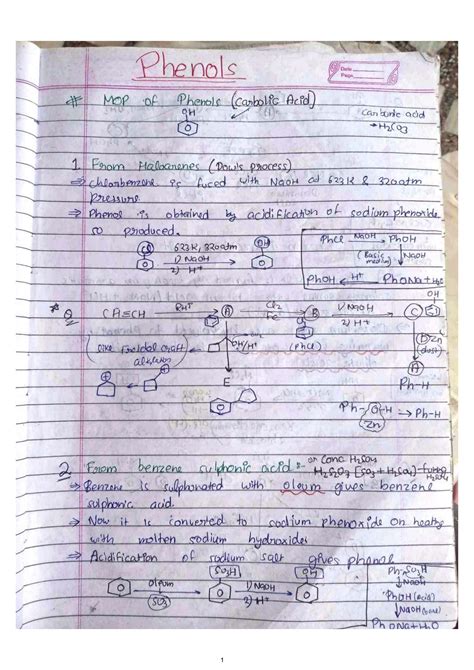 Phenols
Date
Page
# MOP of Phenols (Carbolic Acid)
OH
Carbonic acid
→ H₂CO3
1. From Haloarenes (Dow's process)
⇒ Chlorobenzene is fused with NaOH at 623K & 320 atm
pressure.
⇒ Phenol is obtained by acidification of sodium phenoxide
so produced.
Cl 623 K, 320 atm OH
1) NaOH
2) H⁺
PhCl NaOH → PhOH
(Basic medium) ↓ NaOH
PhOH ← H⁺ PhONa + H₂O
* Q CH≡CH RhT → A Cl₂ Fe → B 1) NaOH 2) H⁺ → C OH
(PhCl)
Zn
(dust)
OH/H⁺
A
Ph-H
E
Ph-O-H → Ph-H
Zn
2. From benzene sulphonic acid :- or Conc H₂SO₄
H₂S₂O7 [SO3 + H₂SO₄]
⇒ Benzene is sulphonated with oleum gives benzene
sulphonic acid.
⇒ Now it is converted to sodium phenoxide on heating
with molten sodium hydroxide
⇒ Acidification of sodium salt gives phenol
Oleum SO3H 1) NaOH OH
SO3 2) H⁺
Ph-SO3H
↓ NaOH
PhOH (Acid)
↓ NaOH (base)
PhONa + H₂O
1